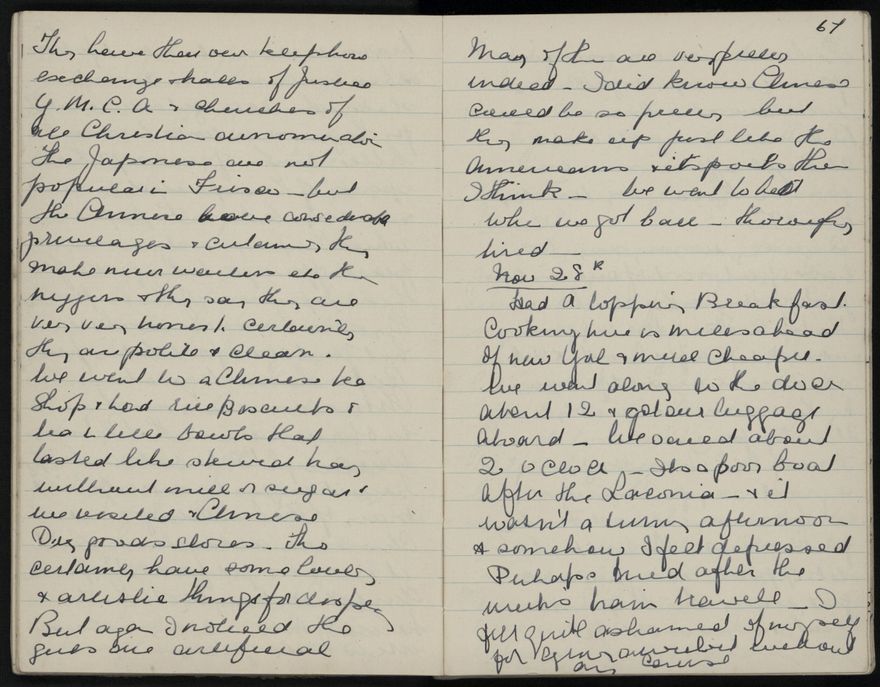 They have their own telephone
exchange & halls of Justice
Y.M.C.A & churches of
all Christian dunomination
The Japonese are not
popular in Frisco – but
the Chinese have considerable
privelages & certainly they
make nicer waiters etc than
niggers & they say they are
very very honest. certainly
they are polite & clean.
We went to a Chinese tea
shop & had rice Biscuits &
tea in little bowls that
tasted like stewed hay
without milk or sugar &
we visited Chinese
Dry goods stores. The
certainly have some lovely
& artistic things for
But again I noticed the
girls are artificial
67
Many of them are very pretty
indeed – I did know Chinese
could be so pretty but
they make up just like the
Americans & it spoils them
I think – We went to bed
when we got back – thoroughly
tired –
Nov 28th
Had a topping Breakfast.
Cooking here is miles ahead
of New York & much cheaper.
We went along to the dock
about 12 & got our luggage
aboard – We sailed about
2 o clock – Its a poor boat
after the Laconia – & it
wasn't a sunny afternoon
& somehow I felt depressed
Perhaps tired after the
weeks train travell – I
felt quite ashamed of myself
for without
any cause